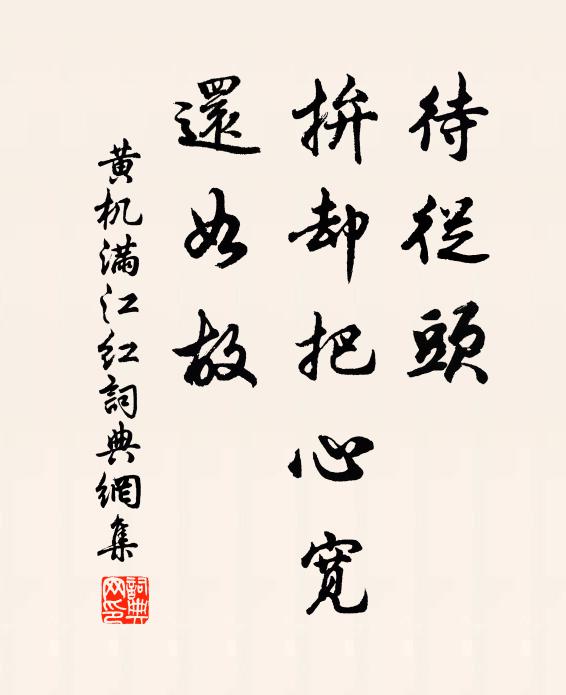 待從頭
拚却把心寬
還如故
黄机满江红詞典網集
詞典网印